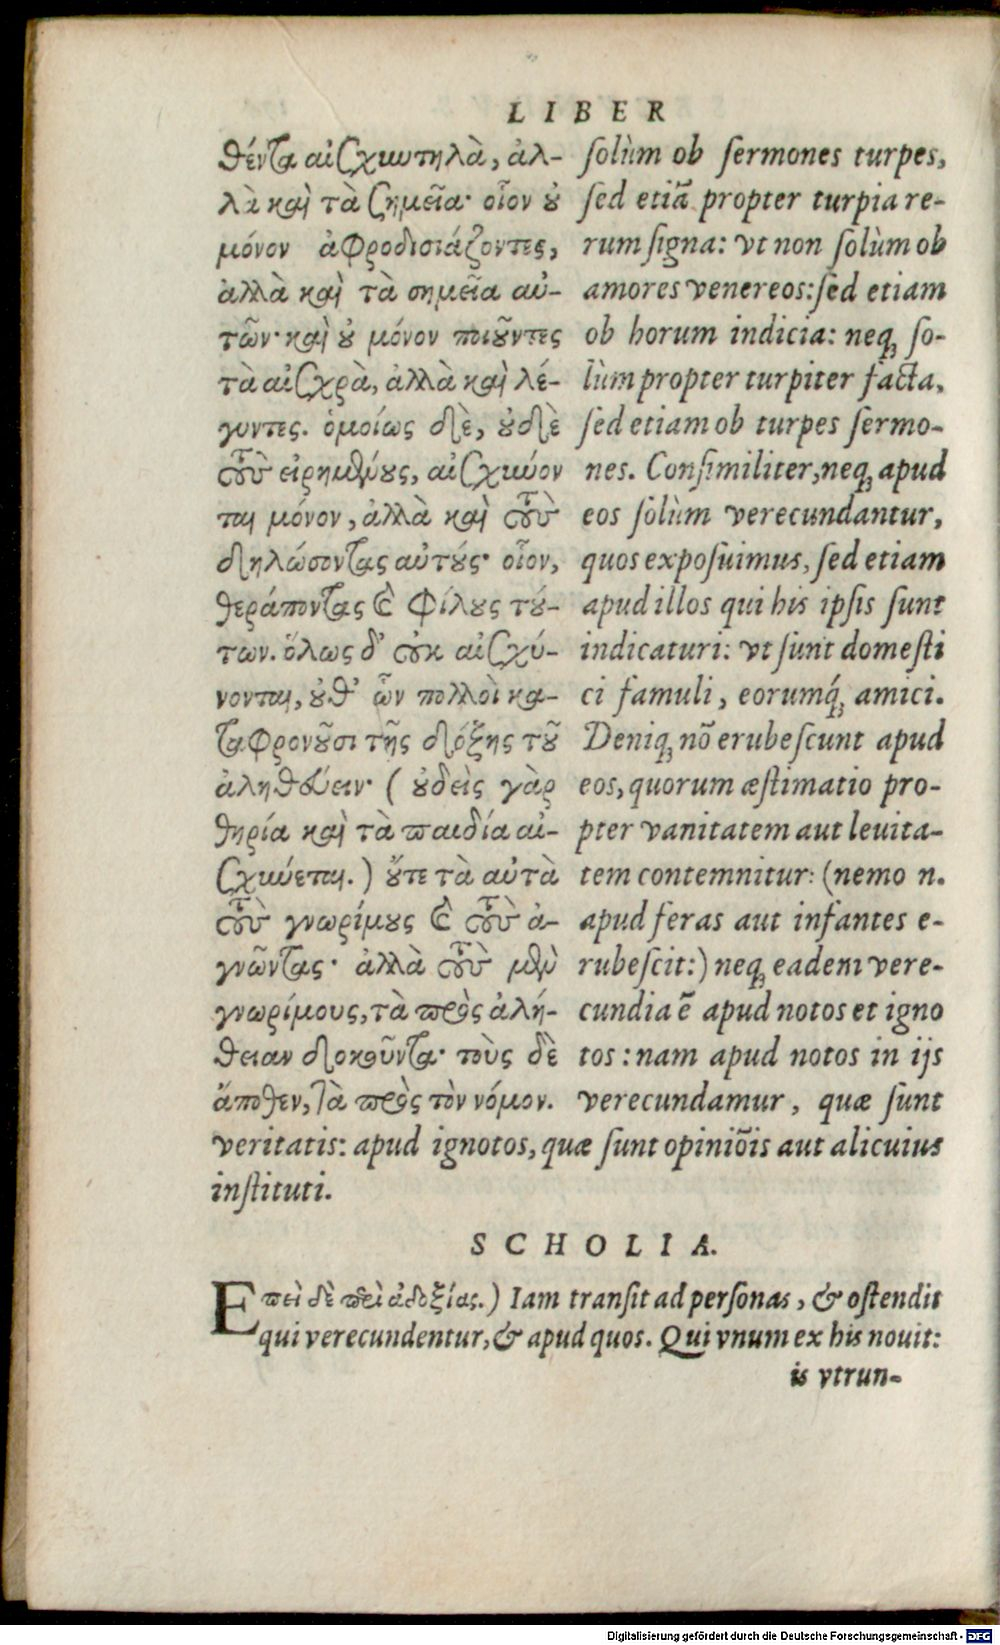 LIBER
θέντα αἰσχυντηλὰ, ἀλ-
λὰ καὶ τὰ σημεῖα· οἷον ȣ
μόνον ἀφροδισιάζοντες,
ἀλλὰ καὶ τὰ σημεῖα αὐ-
τῶν· καὶ ȣ μόνον ποιȣ͂ντες
τὰ αἰσχρὰ, ἀλλὰ καὶ λέ-
γοντες. ὁμοίως δὲ, ȣδὲ
τοὺς εἰρημένȣς, αἰσχύνον
ται μόνον, ἀλλὰ καὶ τοὺς
δηλώσοντας αὐτȣ́ς· οἷον,
θεράποντας & φίλȣς τȣ́-
των. ὅλως δ' οὐκ αἰσχύ-
νονται, ȣθ' ὧν πολλοὶ κα-
ταφρονȣ͂σι τῆς δόξης τȣ͂
ἀληθεύειν· ( ȣδεὶς γὰρ
θηρία καὶ τὰ παιδία αἰ-
σχύνεται.) ȣ̓́τε τὰ αὐτὰ
τοὺς γνωρίμȣς & τοὺς ἀ-
γνῶντας· ἀλλὰ τοὺς μὲν
γνωρίμους, τὰ πρὸς ἀλή-
θειαν δοκοῦντα· τοὺς δὲ
ἄποθεν, τὰ πρὸς τὸν νόμον.
ſolùm ob ſermones turpes,
ſed etiã propter turpia re-
rum ſigna: vt non ſolùm ob
amores venereos: ſed etiam
ob horum indicia: neq; ſo-
lùm propter turpiter facta,
ſed etiam ob turpes ſermo-
nes. Conſimiliter, neq; apud
eos ſolùm verecundantur,
quos expoſuimus, ſed etiam
apud illos qui his ipſis ſunt
indicaturi: vt ſunt domeſti
ci famuli, eorumq́; amici.
Deniq; nõ erubeſcunt apud
eos, quorum æſtimatio pro-
pter vanitatem aut leuita-
tem contemnitur: (nemo n.
apud feras aut infantes e-
rubeſcit:) neq; eadem vere-
cundia ẽ apud notos et igno
tos: nam apud notos in ijs
verecundamur, quæ ſunt
veritatis: apud ignotos, quæ ſunt opiniõis aut alicuius
inſtituti.
SCHOLIA.
Επεὶ δὲ περὶ ἀδοξίας.) Iam tranſit ad perſonas, & oſtendit
qui verecundentur, & apud quos. Qui vnum ex his nouit:
is vtrun-
Digitalisierung gefördert durch die Deutsche Forschungsgemeinschaft - DFG